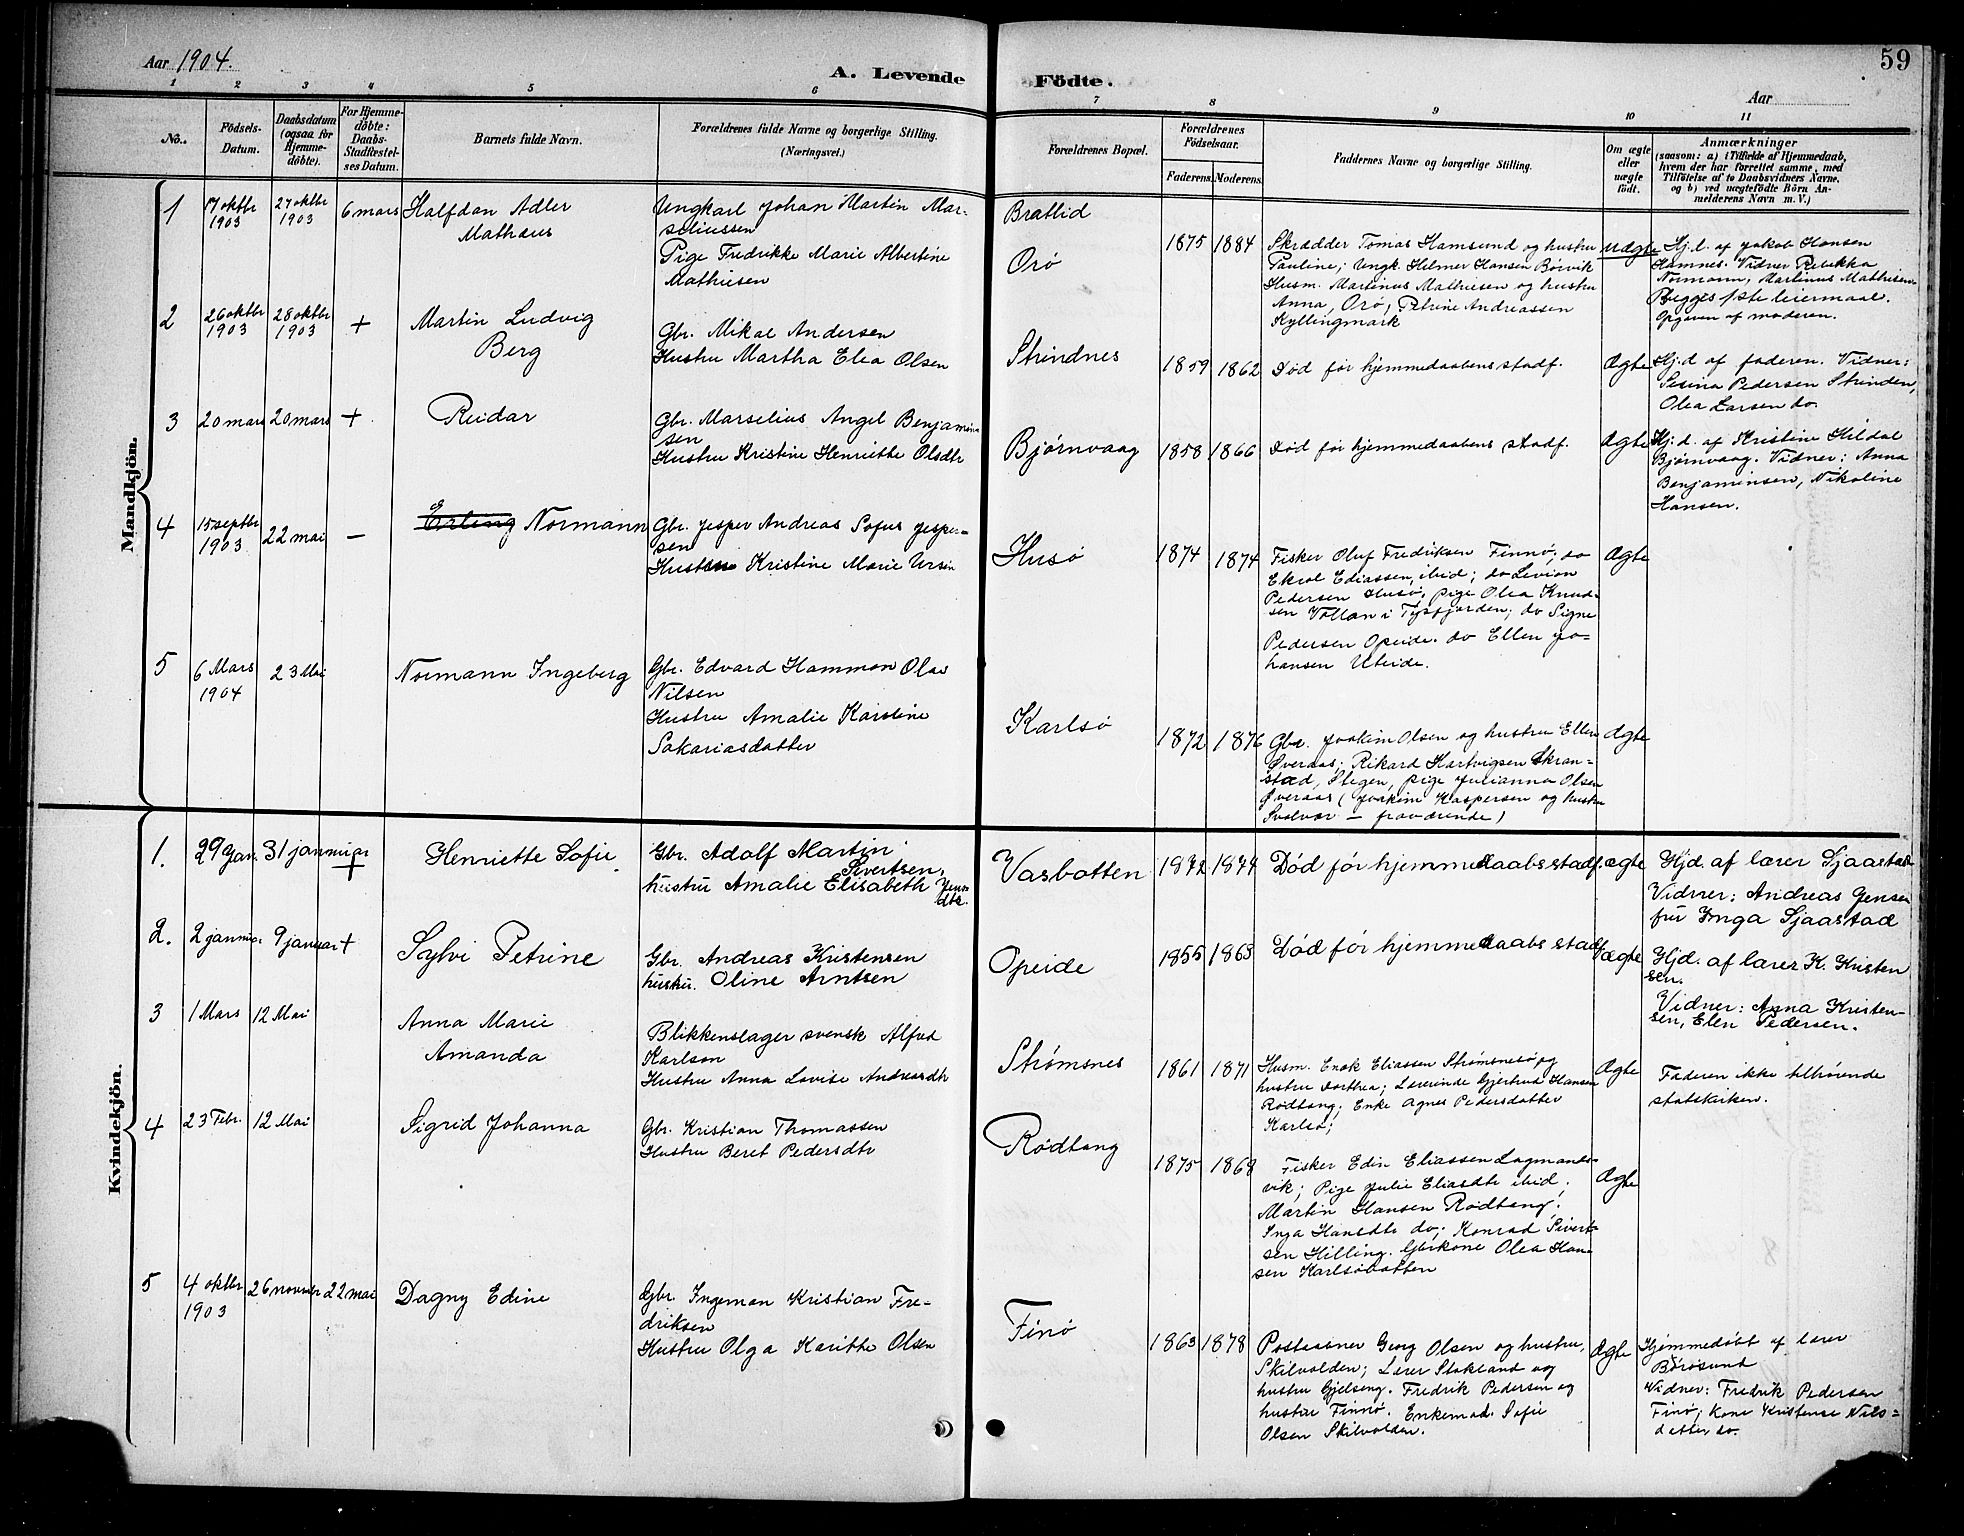 Aar 1904.
A. Levende
Födte.
59
Aar
1 2 3 4 5 6 7 8 9 10 11
No.
Födsels-
Datum.
Daabsdatum
(ogsaa for
Hjemme-
döbte).
For Hjemme-
döbte:
Daabs-
Stadfæstel-
ses Datum.
Barnets fulde Navn.
Forældrenes fulde Navne og borgerlige Stilling.
(Næringsvei.)
Forældrenes Bopæl.
Forældrenes
Födselsaar.
Faderens. Moderens.
Faddernes Navne og borgerlige Stilling.
Om ægte
eller
uægte
födt.
Anmærkninger
(saasom: a) i Tilfælde af Hjemmedaab,
hvem der har forrettet samme, med
Tilföielse af to Daabsvidners Navne,
og b) ved uægtefödte Börn An-
melderens Navn m. V.)
Mandkjön.
1
17 oktbr
1903
27 oktbr
1903
6 mars
Halfdan Adler
Mathæus
Ungkarl Johan Martin Mar-
seliussen
Pige Fredrikke Marie Albertine
Mathiesen
Brattlid
Orö
1875 1884
Skrædder Tomas Hamsund og hustru
Pauline; Ungk. Hilmer Hansen Börvik
Husm. Martinus Mathiesen og hustru
Anna, Orö; Petrine Andreassen
Kyllingmark
uægte
Hj.d. af Jakob Hansen
Hamnes. Vidner Rebekka
Normann, Martinus Mathiesen
Begges 1ste leiermaal.
Opgiven af moderen.
2
26 oktbr
1903
28 oktbr
1903
+
Martin Ludvig
Berg
Gbr. Mikal Andersen
Hustru Martha Elea Olsen
Strindnes
1859 1862
Död för hjemmedaabens stadf.
Ægte
Hj.d af faderen. Vidner:
Sesina Pedersen Strinden,
Olea Larsen do.
3
20 mars
20 mars
+
Reidar
Gbr. Marselius Angel Benjamin
sen
Hustru Kristine Henriette Olsdtr
Bjørnvaag
1858 1866
Död för hjemmedaabens stadf.
Ægte
Hj.d. af Kristine Hildal
Bjørnvaag. Vidner: Anna
Benjaminsen, Nikoline
Hansen.
4
15 septbr
1903
22 mai
-
Erling Normann
Gbr. Jesper Andreas Sofus Jesper-
sen
Hustru Kristine Marie Ursin
Husö
1874 1874
Fisker Oluf Fredriksen Finnö; do
Ekrol Ediassen, ibid; do Levion
Pedersen Husö, pige Olea Knud-
sen Vollan i Tysfjorden; do Signe
Pedersen Opeide. do Ellen Jo-
hansen Uteide.
Ægte
5
6 Mars
1904
23 Mai
Normann Ingeberg
Gbr. Edvard Hammon Olav
Nilsen
Hustru Amalie Karstine
Sakariasdatter
Karlsö
1872 1876
Gbr. Joakim Olsen og hustru Ellen
Sveraas; Rikard Hartvigsen Skran-
stad, Stegen, pige Julianna Olsen
Sveraas (Joakim Kaspersen og hustru
Svolvær - fraværende)
Ægte
Kvindekjön.
1.
29 Jan.
31 januar
+
Henriette Sofie
Gbr. Adolf Martin
Sivertsen,
hustru Amalie Elisabeth Jens
dtr.
Vasbotten
1872 1874
Död før hjemmedaabs stadf.
ægte
Hjd. af lærer Sjaastad
Vidner: Andreas Jensen
fru Inga Sjaastad
2.
2 januar
9 januar
+
Sylvi Petrine
Gbr. Andreas Kristensen
hustru. Oline Arntsen
Opeide
1855 1863
Död før hjemmedaabs stadf.
ægte
Hjd. af lærer K. Kristen
sen.
Vidner: Anna Kristen-
sen, Elen Pedersen.
3
1 Mars
12 Mai
Anna Marie
Amanda
Blikkenslager svensk Alfred
Karlson
Hustru Anna Lovise Andreasdtr
Strømsnes
1861 1871
Husm. Enok Eliassen Strømsnes og
hustru Dorthea; Lærerinde Gjertrud Hansen
Rødtang; Enke Agnes Pedersdatter
Karlsö;
Ægte
Faderen ikke tilhørende
statskirken.
4
23 Febr.
12 Mai
Sigrid Johanna
Gbr. Kristian Thomassen
Hustru Beret Pedersdtr
Rødtang
1875 1868
Fisker Edin Eliassen Lagmands-
vik; Pige Julie Eliasdtr ibid,
Martin Hansen Rødtang,
Inga Hansdtr do; Konrad Sivert-
sen Hilling. Gbrkone Olea Han-
sen Karlsöbotten
Ægte
5
4 oktbr
1903
26 novmbr
22 mai
Dagny Edine
Gbr. Ingeman Kristian Fre-
driksen
Hustru Olga Karitte Olsen
Finö
1863 1878
Postaabner Georg Olsen og hustru,
Skilvolden; Lærer Stokland og
hustru Gjelseng. Fredrik Pedersen og
hustru Finnö. Enkemad. Sofie
Olsen Skilvolden.
Ægte
Hjemmedöbt af lærer
Börösund
Vidner: Fredrik Pedersen
Finö; Kone Kristense Nils-
datter do.